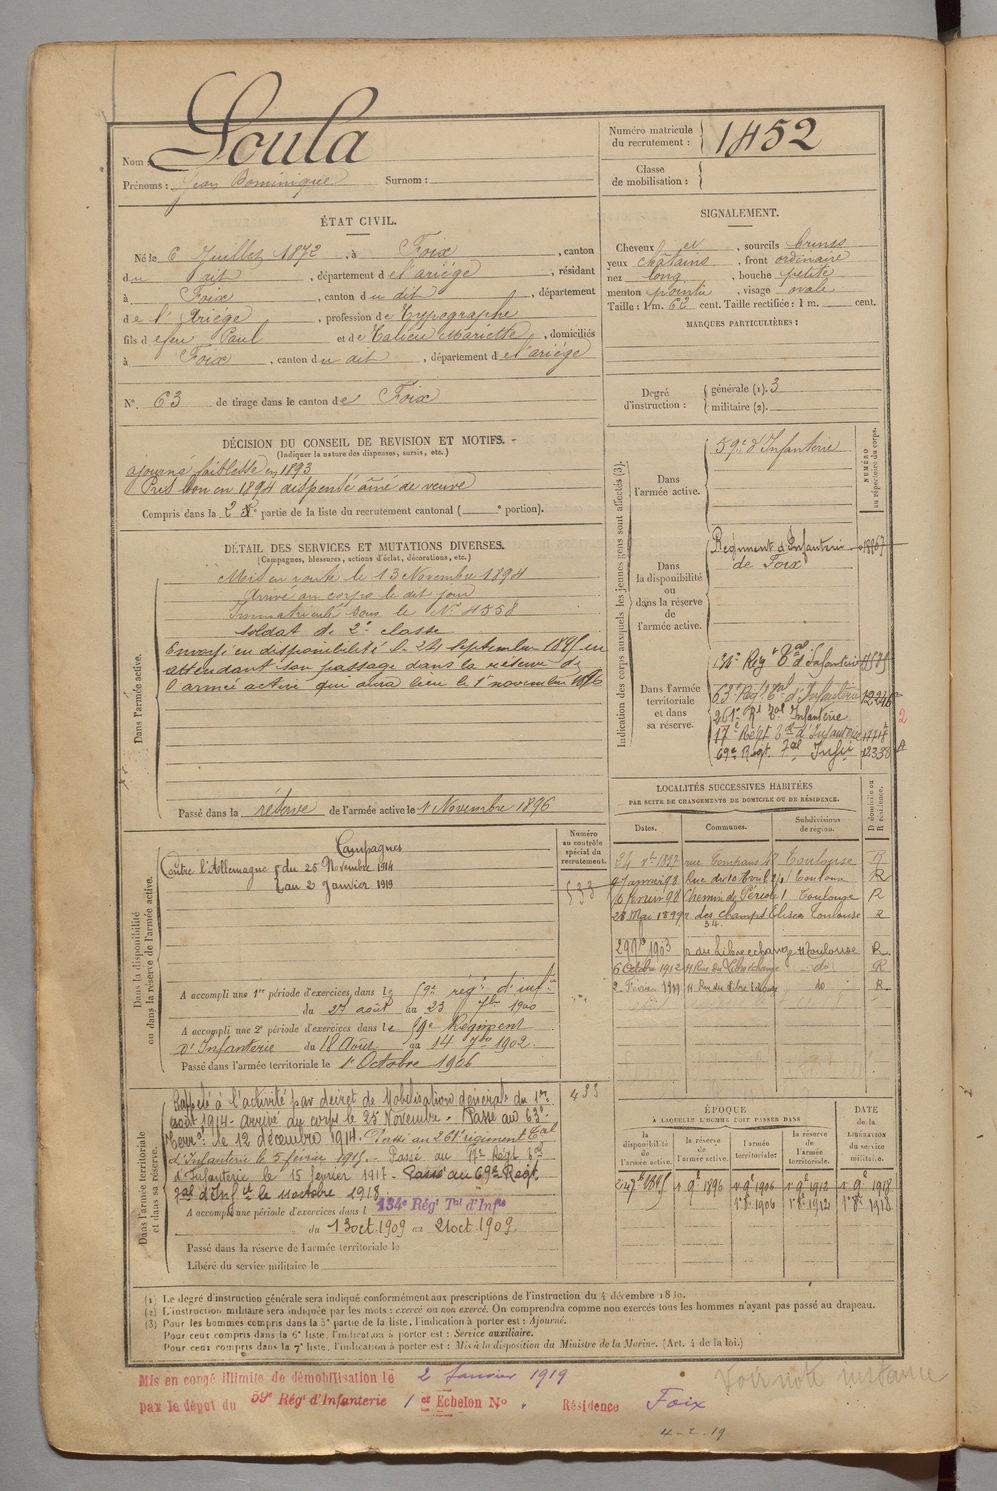 Nom : Soula
Prénoms : Jean Dominique Surnom :
Numéro matricule du recrutement : 1452
Classe de mobilisation :
ÉTAT CIVIL.
Né le 6 Juillet 1872, à Foix, canton
du dit, département de l'ariége, résidant
à Foix, canton du dit, département
de l'Ariége, profession de Typographe
fils de feu Paul et de Talieu Mariette, domiciliés
à Foix, canton du dit, département de l'ariége
N° 63 de tirage dans le canton de Foix
SIGNALEMENT.
Cheveux et, sourcils bruns
yeux châtains, front ordinaire
nez long, bouche petite
menton pointu, visage ovale
Taille : 1 m. 62 cent. Taille rectifiée : 1 m. cent.
MARQUES PARTICULIÈRES :
Degré d'instruction : générale (1). 3
militaire (2).
DÉCISION DU CONSEIL DE REVISION ET MOTIFS.
(Indiquer la nature des dispenses, sursis, etc.)
ajourné faiblesse en 1893
Pris bon en 1894 dispensé aîné de veuve
Compris dans la 2e partie de la liste du recrutement cantonal ( e portion).
DÉTAIL DES SERVICES ET MUTATIONS DIVERSES.
(Campagnes, blessures, actions d'éclat, décorations, etc.)
Dans l'armée active.
Mis en route le 13 Novembre 1894
Arrivé au corps le dit jour
Immatriculé sous le N° 4558
soldat de 2e classe
Envoyé en disponibilité le 24 septembre 1895 en
attendant son passage dans la réserve de
l'armée active qui aura lieu le 1er novembre 1896
Passé dans la réserve de l'armée active le 1 Novembre 1896
Indication des corps auxquels les jeunes gens sont affectés (3).
NUMÉRO au répertoire du corps.
Dans l'armée active.
59e d'Infanterie
Dans la disponibilité ou dans la réserve de l'armée active.
Régiment d'Infanterie
de Foix
Dans l'armée territoriale et dans sa réserve.
130e Rég t Tal d'Infanterie
63e Regt Tal d'Infanterie
261e Rt Tal Infanterie
17e Régt Tal d'Infanterie
69e Régt. Tal Infie
2
LOCALITÉS SUCCESSIVES HABITÉES
PAR SUITE DE CHANGEMENTS DE DOMICILE OU DE RÉSIDENCE.
Dates. Communes. Subdivisions de région. D domicile ou R résidence.
Toulouse
R
Chemin de Périole 1 Toulouse R
28 Mai 1899 r des champs Elisées Toulouse R
34
1903 r du Libre echange 11 Toulouse R
6 Octobre 1912 11 Rue du Libre Echange do R
2 Février 11 Rue du Libre Echange do R
Dans la disponibilité ou dans la réserve de l'armée active.
Numéro au contrôle spécial du recrutement.
Campagnes
Contre l'Allemagne du 25 Novembre 1914
au 2 Janvier 1919
533
A accompli une 1re période d'exercices dans le 59e rég. d'infie
du 27 août au 23 7bre 1900
A accompli une 2e période d'exercices dans le 59e Régiment
d'Infanterie du 18 Août au 14 7bre 1902.
Passé dans l'armée territoriale le 1er Octobre 1906
Dans l'armée territoriale et dans sa réserve.
433
Rappelé à l'activité par décret de Mobilisation générale du 1er
août 1914. arrivé au corps le 25 Novembre. Passé au 63e
Terral le 12 décembre 1914. Passé au 261e régiment Tal
d'Infanterie le 5 février 1915. Passé au 17e Régt Tal
d'Infanterie le 15 février 1917. Passé au 69e Regt.
Tal d'Infie le 11 octobre 1918
A accompli une période d'exercices dans l 134e Régt Tal d'Infie
du 13 oct. 1909 au 21 oct 1909.
Passé dans la réserve de l'armée territoriale le
Libéré du service militaire le
ÉPOQUE
À LAQUELLE L'HOMME DOIT PASSER DANS
DATE de la LIBÉRATION du service militaire.
la disponibilité de l'armée active. la réserve de l'armée active. l'armée territoriale. la réserve de l'armée territoriale.
24 7bre 1895 1er 9e 1896 1er 9e 1906 1er 9e 1912 1er 9e 1918
1er 8e 1906 1er 8e 1912 1er 8e 1918
(1) Le degré d'instruction générale sera indiqué conformément aux prescriptions de l'instruction du 4 décembre 1889.
(2) L'instruction militaire sera indiquée par les mots : exercé ou non exercé. On comprendra comme non exercés tous les hommes n'ayant pas passé au drapeau.
(3) Pour les hommes compris dans la 5e partie de la liste, l'indication à porter est : Ajourné.
Pour ceux compris dans la 6e liste, l'indication à porter est : Service auxiliaire.
Pour ceux compris dans la 7e liste, l'indication à porter est : Mis à la disposition du Ministre de la Marine. (Art. 4 de la loi.)
Mis en congé illimité de démobilisation le 2 Janvier 1919
par le dépôt du 59e Régt d'Infanterie 1er Echelon No. Résidence Foix
Voir note instance
4-2-19